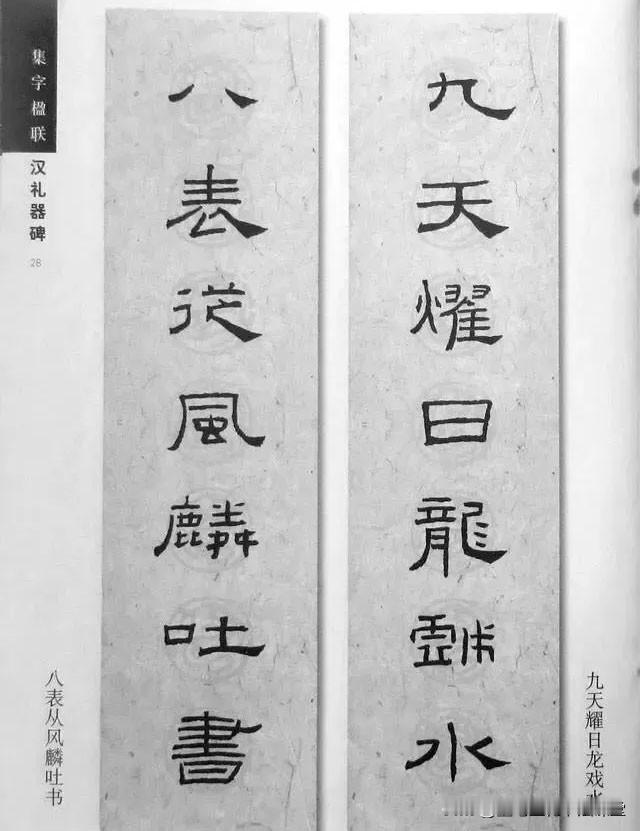 九天耀日龍戲水
八表從風麟吐書
集字楹联
汉礼器碑
28
九天耀日龙戏水
八表从风麟吐书